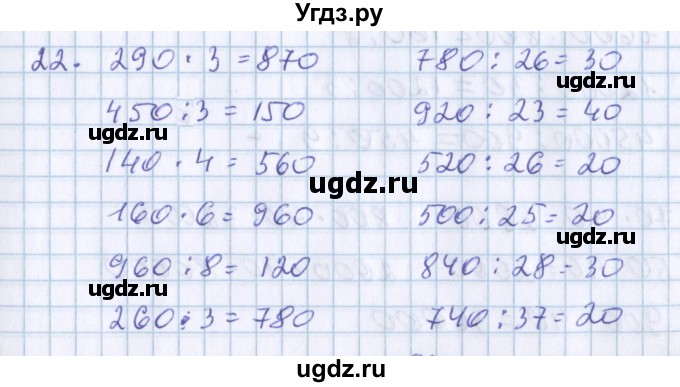 Угдз.ру
22. 290 · 3 = 870 780 : 26 = 30
450 : 3 = 150 920 : 23 = 40
ugdz.ru ugdz.ru
140 · 4 = 560 520 : 26 = 20
ugdz.ru
160 · 6 = 960 500 : 25 = 20
ugdz.ru
960 : 8 = 120 840 : 28 = 30
ugdz.ru
260 · 3 = 780 740 : 37 = 20
ugdz.ru